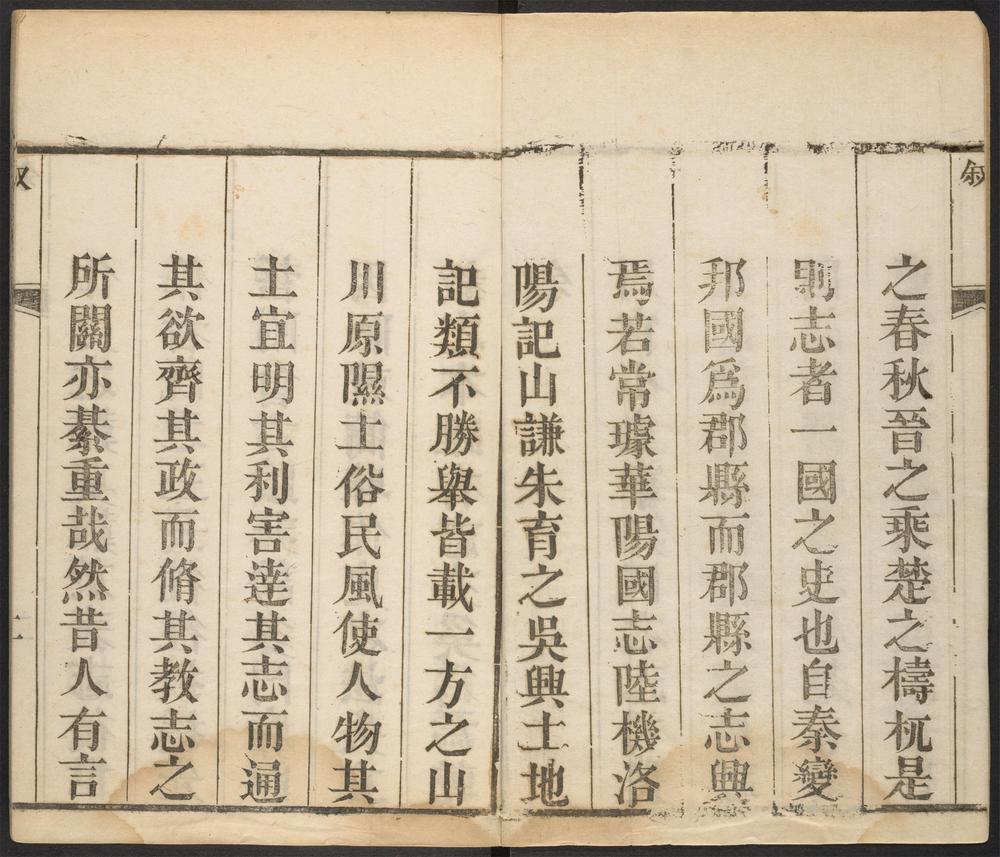 敘
之春秋晉之乘楚之檮杌是
則志者一國之史也自秦變
邦國爲郡縣而郡縣之志興
焉若常璩華陽國志陸機洛
陽記山謙朱育之吳興土地
記類不勝舉皆載一方之山
川原隰土俗民風使人物其
土宜明其利害達其志而通
其欲齊其政而脩其教志之
所關亦綦重哉然昔人有言
二